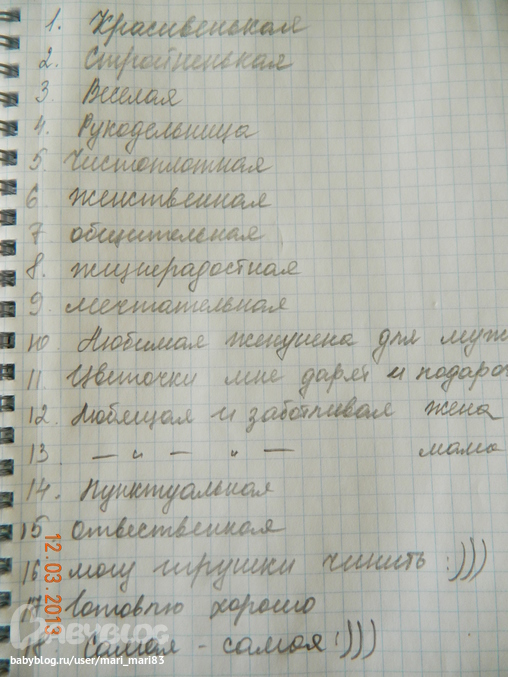 1. Красивенькая
2. Стройненькая
3. Веселая
4. Рукодельница
5. Чистоплотная
6 женственная
7 общительная
8. жизнерадостная
9 мечтательная
10 Любимая женушка для муж
11. Цветочки мне дарят и подаро
12. Любящая и заботливая жена
13 — " — " — мама
14. Пунктуальная
15 отвественная
16 могу игрушки чинить :)))
17 Готовлю хорошо
18 Самая - самая!)))
12.03.2013
BABYBLOG
babyblog.ru/user/mari_mari83